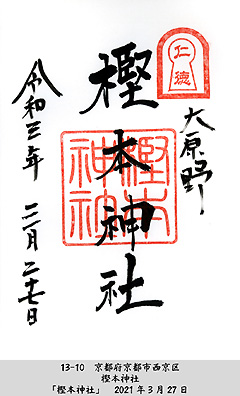 仁徳
大原野
樫本神社
樫本
神社
令和三年 三月二十七日
13-10 京都府京都市西京区
樫本神社
「樫本神社」 2021年3月27日